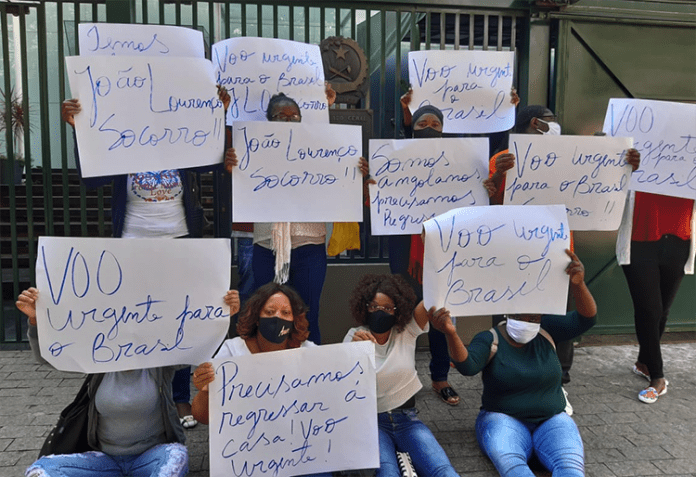 Temos
João Lourenço
Socorro!!
Voo urgente
para o Brasil
JL
João Lourenço
Socorro!!
Voo urgente
para
o
Brasil
Somos
angolanos
precisamos
Regressar
Voo urgente
para o Brasil
!!
Voo
urgente
para o
Brasil
Voo
urgente para
o Brasil
Voo urgente
para o
Brasil
Precisamos
regressar à
casa! Voo
Urgente!